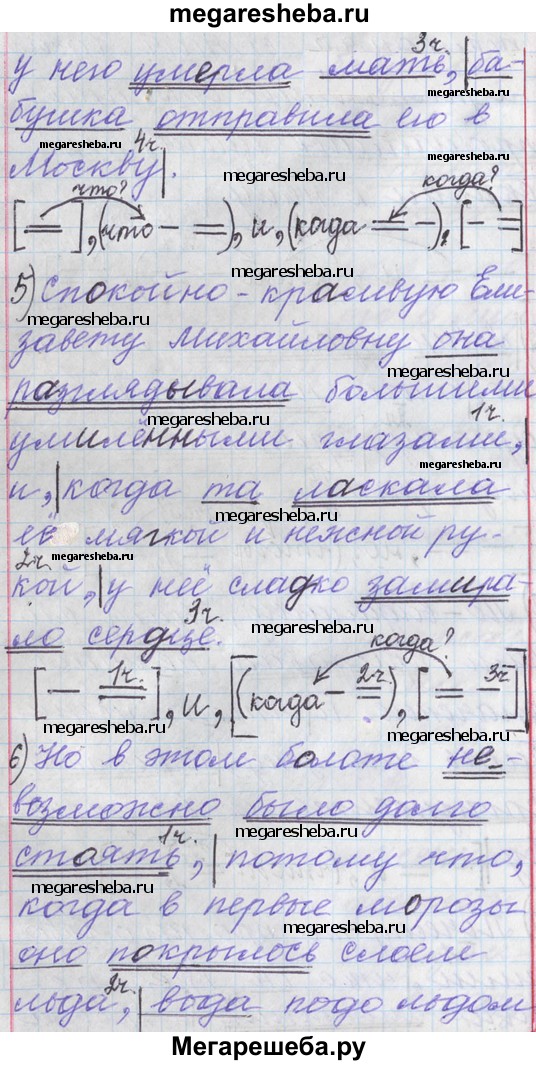 megaresheba.ru
3ч.
у него умерла мать, ба-
megaresheba.ru
бушка отправила его в
megaresheba.ru
4ч.
Москву.
megaresheba.ru
что? когда?
[ = ], (что - = ), и, (когда = - ), [ - = ]
megaresheba.ru
5) Спокойно - красивую Ели-
megaresheba.ru
завету Михайловну она
megaresheba.ru
разглядывала большими
megaresheba.ru
1ч.
умилёнными глазами,
megaresheba.ru
и, когда та ласкала
megaresheba.ru
её мягкой и нежной ру-
megaresheba.ru
2ч.
кой, у неё сладко замира-
megaresheba.ru
3ч.
ло сердце.
megaresheba.ru
когда?
1ч. 2ч. 3ч
[ - = ], и, [(когда - = ), [ = - ]]
megaresheba.ru
6) Но в этом болоте не-
megaresheba.ru
возможно было долго
megaresheba.ru
1ч.
стоять, потому что,
megaresheba.ru
когда в первые морозы
megaresheba.ru
оно покрылось слоем
megaresheba.ru
2ч.
льда, вода подо льдом
Мегарешеба.ру